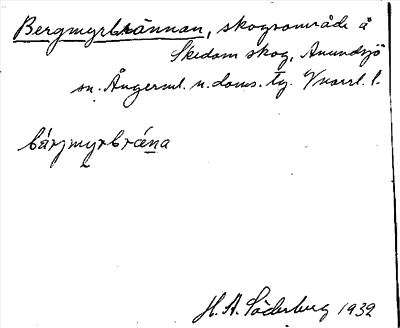 Bergmyrbrännan, skogsområde å
Skedom skog, Anundsjö
sn. Ångerml. n. doms. tg. Vnorrl. l.
bárjmyrbräna
H. A. Söderberg 1932